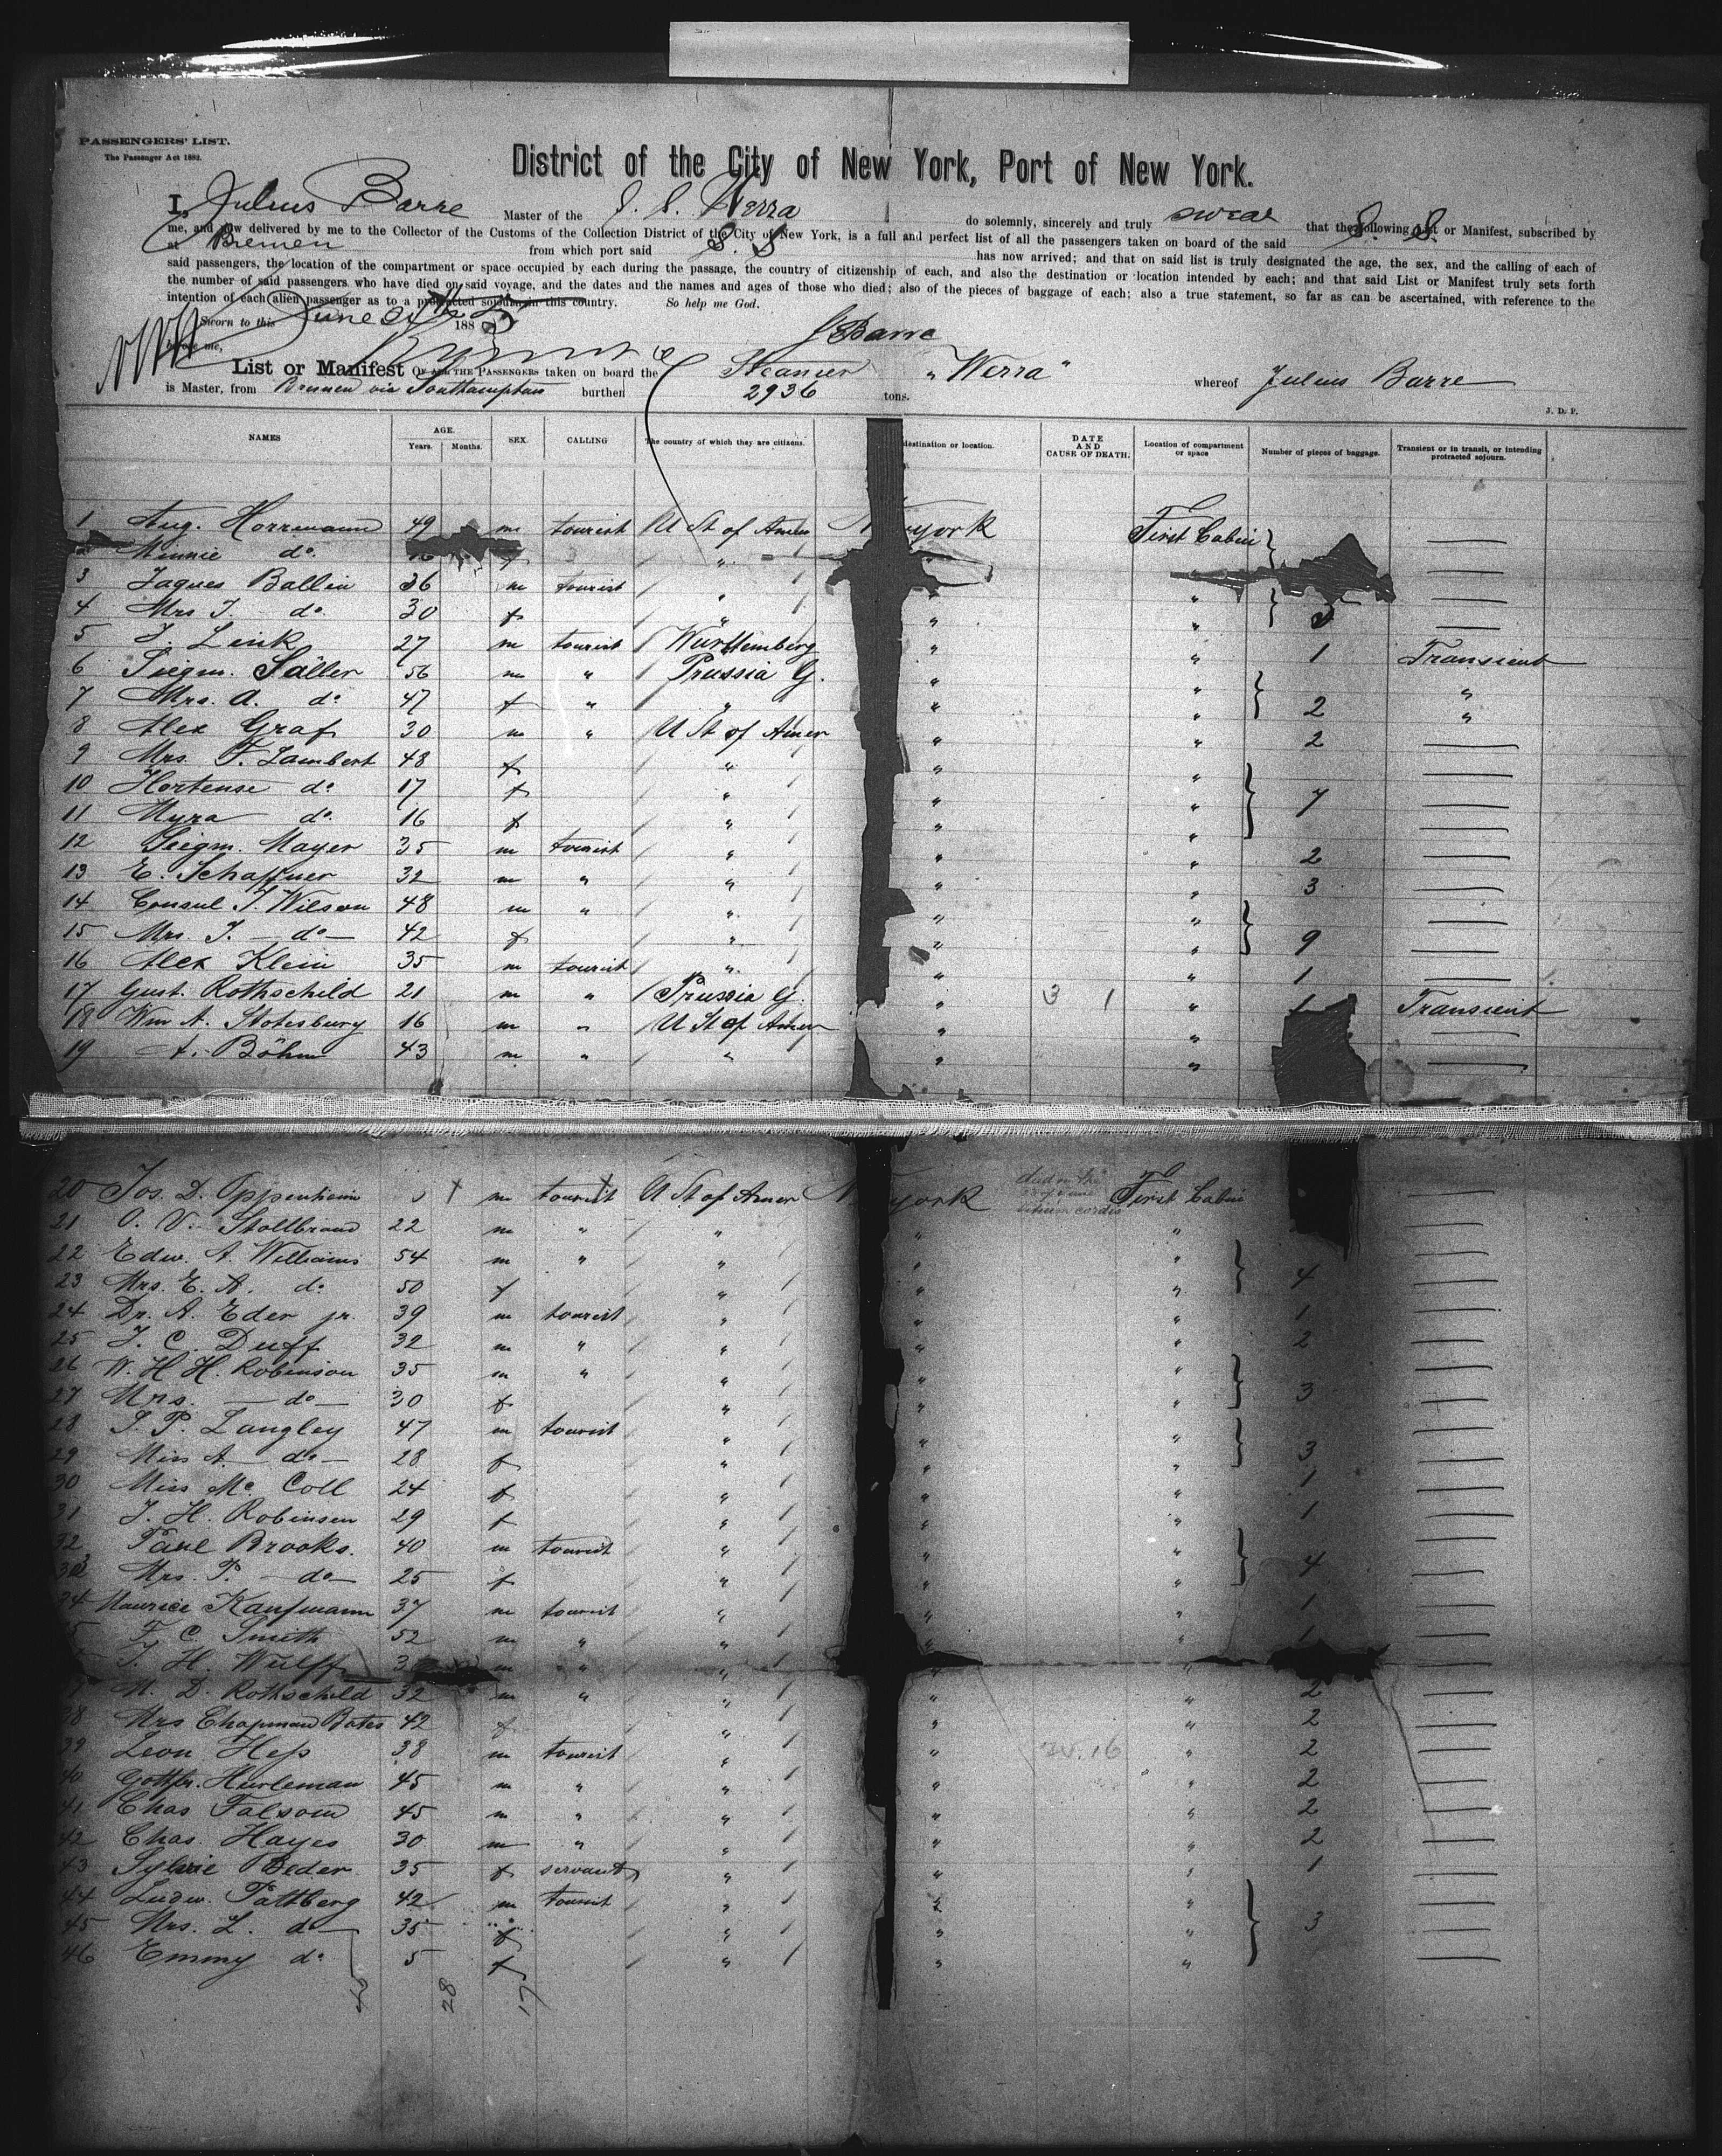 PASSENGERS' LIST.
The Passenger Act 1882.
District of the City of New York, Port of New York.
I, Julius Barre Master of the S. S. Werra do solemnly, sincerely and truly swear that the following List or Manifest, subscribed by
me, and now delivered by me to the Collector of the Customs of the Collection District of the City of New York, is a full and perfect list of all the passengers taken on board of the said S. S.
at Bremen from which port said S. S. has now arrived; and that on said list is truly designated the age, the sex, and the calling of each of
said passengers, the location of the compartment or space occupied by each during the passage, the country of citizenship of each, and also the destination or location intended by each; and that said List or Manifest truly sets forth
the number of said passengers who have died on said voyage, and the dates and the names and ages of those who died; also of the pieces of baggage of each; also a true statement, so far as can be ascertained, with reference to the
intention of each alien passenger as to a protracted sojourn in this country. So help me God.
Sworn to this June 188
before me,
J Barre
List or Manifest OF ALL THE PASSENGERS taken on board the Steamer "Werra" whereof Julius Barre
is Master, from Bremen via Southampton burthen 2936 tons.
J. D. P.
NAMES AGE. Years. Months. SEX. CALLING The country of which they are citizens. destination or location. DATE AND CAUSE OF DEATH. Location of compartment or space Number of pieces of baggage. Transient or in transit, or intending protracted sojourn.
1 Aug. Horrmann 49 m tourist U St of Amer N York First Cabin —
Minnie do. f " " " —
3 Jaques Ballin 36 m tourist " " " —
4 Mrs J. do 30 f " " " 5 —
5 J. Link 27 m tourist Württemberg " " 1 Transient
6 Siegm. Säller 56 m " Prussia G. " " "
7 Mrs. A. do 47 f " " " " 2 "
8 Alex Graf 30 m " U St of Amer " " 2 —
9 Mrs. F. Lambert 48 f " " " —
10 Hortense do 17 f " " " 7 —
11 Myra do. 16 f " " " —
12 Siegm. Mayer 35 m tourist " " " 2 —
13 E. Schaffner 32 m " " " " 3 —
14 Consul J. Wilson 48 m " " " " —
15 Mrs. J. — do — 42 f " " " 9 —
16 Alex Klein 35 m tourist " " " 1 —
17 Gust. Rothschild 21 m " Prussia G. " 3 1 " 1 Transient
18 Wm A. Stotesbury 16 m " U St of Amer " " —
19 A. Böhm 43 m " " " " —
20 Jos. D. Oppenheim m tourist U St of Amer N York died on the First Cabin —
21 O. V. Stollbrand 22 m " " " " —
22 Edw. A. Williams 54 m " " " " —
23 Mrs. E. A. do 50 f " " " 4 —
24 Dr. A. Eder jr. 39 m tourist " " " 1 —
25 J. C. Duff 32 m " " " " 2 —
26 W. H. H. Robinson 35 m " " " " —
27 Mrs. — do — 30 f " " " 3 —
28 S. P. Langley 47 m tourist " " " —
29 Miss A. — do — 28 f " " " 3 —
30 Miss Mc Coll 24 f " " " 1 —
31 J. H. Robinson 29 f " " " 1 —
32 Paul Brooks. 40 m tourist " " " —
33 Mrs. P. — do — 25 f " " " 4 —
34 Maurice Kaufmann 37 m tourist " " " 1 —
F. C. Smith 52 m " " " " 1 —
J. H. Wulff 3 m " " " " —
7 M. D. Rothschild 32 m " " " " 2 —
38 Mrs Chapman Bates 42 f " " " 2 —
39 Leon Hess 38 m tourist " " 2 —
40 Gottfr. Hurleman 45 m " " " " 2 —
41 Chas Falsom 45 m " " " " 2 —
42 Chas. Hayes 30 m " " " " 2 —
43 Sylvie Beder 35 f servant " " " 1 —
44 Ludw. Pattberg 42 m tourist " " " —
45 Mrs. L. do 35 f " " " 3 —
46 Emmy do 5 f " " " —
28 17